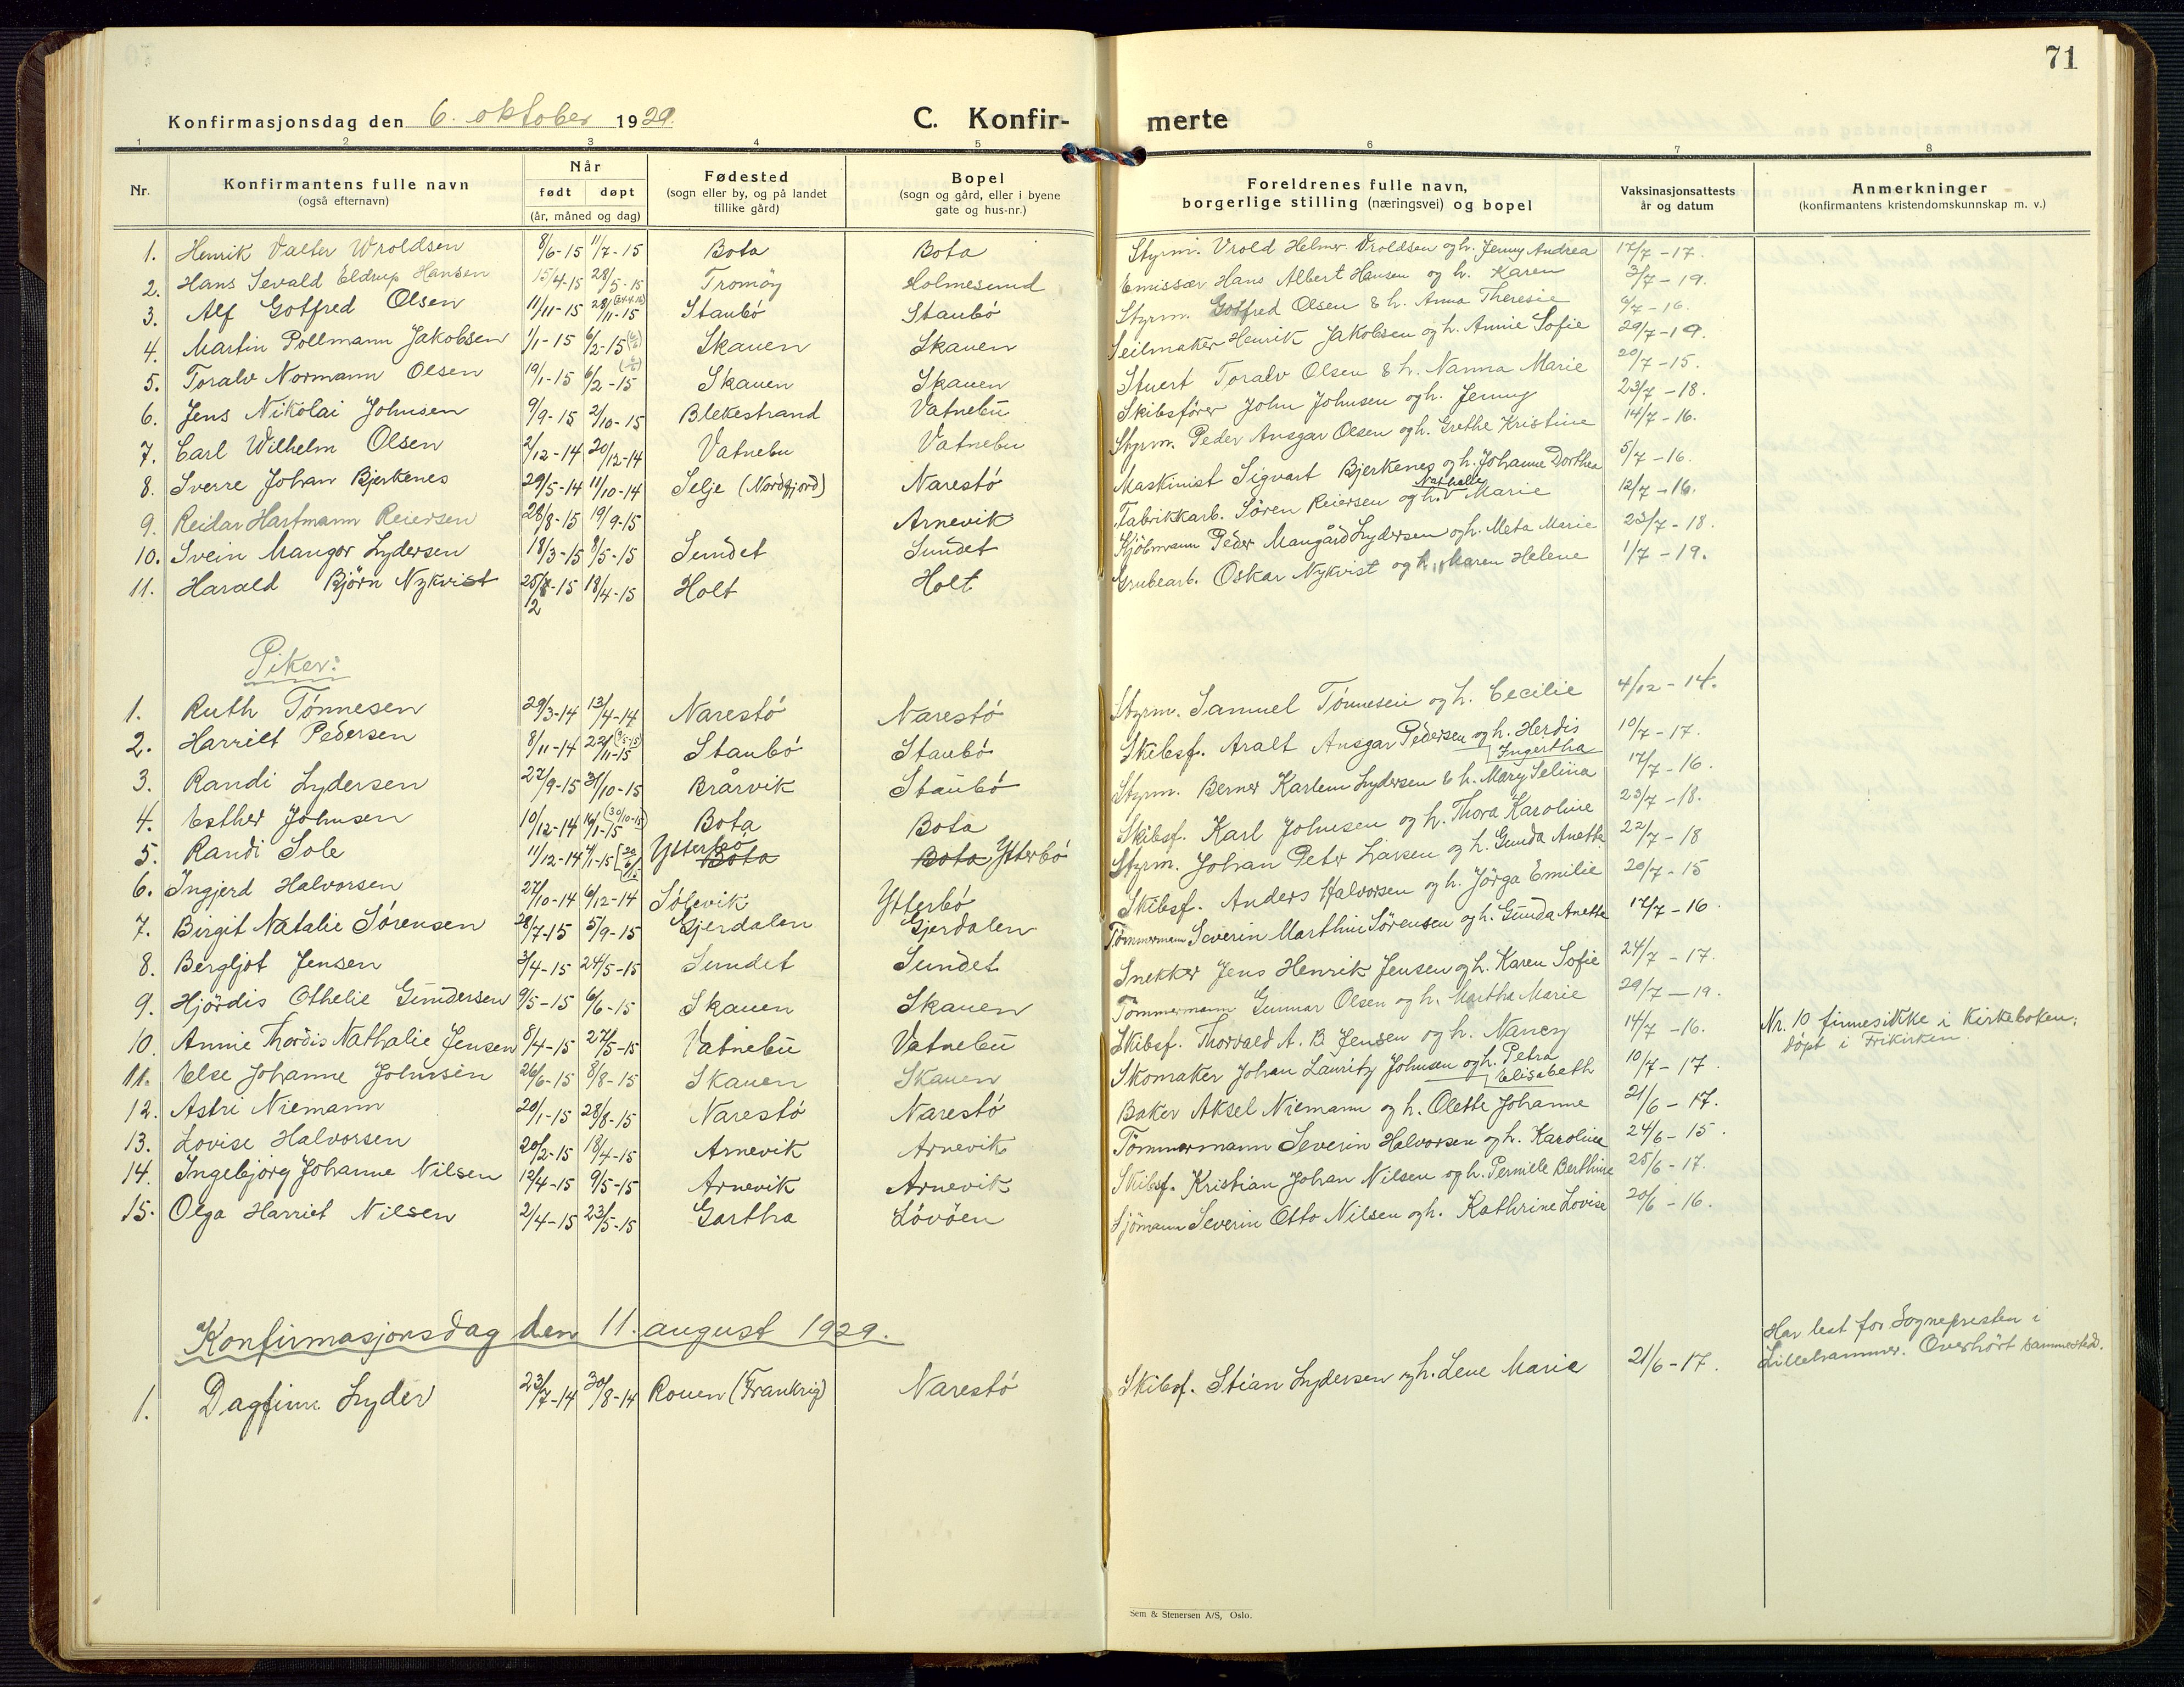 71
Konfirmasjonsdag den 6. oktober 1929.
C. Konfirmerte
1 2 3 4 5 6 7 8
Nr. | Konfirmantens fulle navn (også efternavn) | Når født døpt (år, måned og dag) | Fødested (sogn eller by, og på landet tillike gård) | Bopel (sogn og gård, eller i byene gate og hus-nr.) | Foreldrenes fulle navn, borgerlige stilling (næringsvei) og bopel | Vaksinasjonsattests år og datum | Anmerkninger (konfirmantens kristendomskunnskap m. v.)
1. Henrik Valter Vroldsen 8/6-15 11/7-15 Bota Bota Styrm. Vrold Helmer Vroldsen og h. Jenny Andrea 17/7-17.
2. Hans Sevald Eldrup Hansen 15/4-15 28/5-15 Tromöy Holmesund Emissær Hans Albert Hansen og h. Karen 3/7-19.
3. Alf Gotfred Olsen 11/11-15 28/11-15 Staubö Staubö Styrm. Gotfred Olsen & h. Anna Theresie 6/7-16.
4. Martin Pollmann Jakobsen 1/1-15 6/2-15 Skauen Skauen Seilmaker Henrik Jakobsen og h. Annie Sofie 29/7-19.
5. Toralv Normann Olsen 19/1-15 6/2-15 Skauen Skauen Stuert Toralv Olsen & h. Nanna Marie 20/7-15.
6. Jens Nikolai Johnsen 9/9-15 2/10-15 Blekestrand Vatnebu Skibsfører John Johnsen og h. Jenny 23/7-18.
7. Carl Wilhelm Olsen 2/12-14 20/12-14 Vatnebu Vatnebu Styrm. Peder Ansgar Olsen og h. Grethe Kristine 14/7-16.
8. Sverre Johan Bjerkenes 29/5-14 11/10-14 Selje (Nordfjord) Narestö Maskinist Sigvart Bjerkenes og h. Johanne Dorthea 5/7-16.
9. Reidar Hartmann Reiersen 28/8-15 19/9-15 Arnevik Fabrikkarb. Sören Reiersen og h. Nathalie Marie 12/7-16.
10. Svein Mangor Lydersen 18/3-15 8/5-15 Sundet Sundet Kjöbmann Peder Mangård Lydersen og h. Meta Marie 23/7-18.
11. Harald Björn Nykvist 25/2-15 18/4-15 Holt Holt Grubearb. Oskar Nykvist og h. Maren Helene 1/7-19.
Piker:
1. Ruth Tönnesen 29/3-14 13/4-14 Narestö Narestö Styrm. Samuel Tönnesen og h. Cecilie 4/12-14.
2. Harriet Pedersen 8/11-14 22/11-15 Staubö Staubö Skibsf. Aralt Ansgar Pedersen og h. Herdis Ingertha 10/7-17.
3. Randi Lydersen 27/9-15 31/10-15 Brårvik Staubö Styrm. Berner Karlem Lydersen & h. Mary Selina 17/7-16.
4. Esther Johnsen 10/12-14 16/1-15 (30/10-15) Bota Bota Skibsf. Karl Johnsen og h. Thora Karoline 23/7-18.
5. Randi Sole 11/12-14 4/1-15 Ytterbö Bota Bota Ytterbö Styrm. Johan Peter Larsen og h. Gunda Anette 22/7-18
6. Ingjerd Halvorsen 27/10-14 6/12-14 Sölevik Ytterbö Skibsf. Anders Halvorsen og h. Jörga Emilie 20/7-15
7. Birgit Natalie Sörensen 28/7-15 5/9-15 Gjerdalen Gjerdalen Tömmermann Severin Marthin Sörensen og h. Gunda Anette 17/7-16.
8. Bergljot Jensen 3/4-15 24/5-15 Sundet Sundet Snekker Jens Henrik Jensen og h. Karen Sofie 24/7-17.
9. Hjördis Othelie Gundersen 9/5-15 6/6-15 Skauen Skauen Tömmermann Gunnar Olsen og h. Martha Marie 29/7-19.
10. Annie Thordis Nathalie Jensen 8/4-15 27/5-15 Vatnebu Vatnebu Skibsf. Thorvald A. B. Jensen og h. Nancy 14/7-16. Nr. 10 finnes ikke i Kirkeboken; döpt i Frikirken
11. Else Johanne Johnsen 26/6-15 8/8-15 Skauen Skauen Skomaker Johan Lauritz Johnsen og h. Petra Elisabeth 10/7-17.
12. Astri Niemann 20/1-15 28/8-15 Narestö Narestö Baker Aksel Niemann og h. Olette Johanne 21/6-17.
13. Lovise Halvorsen 20/2-15 18/4-15 Arnevik Arnevik Tömmermann Severin Halvorsen og h. Karoline 24/6-15.
14. Ingebjörg Johanne Nilsen 12/4-15 9/5-15 Arnevik Arnevik Skibsf. Kristian Johan Nilsen og h. Pernille Berthine 25/6-17.
15. Olga Harriet Nilsen 2/4-15 23/5-15 Gartha Lövöen Sjömann Severin Otto Nilsen og h. Kathrine Lovise 20/6-16.
Konfirmasjonsdag den 11. august 1929.
1. Dagfinn Lyder 23/7-14 30/8-14 Rouen (Frankrig) Narestö Skibsf. Stian Lydersen og h. Lene Marie 21/6-17. Har lest for Sognepresten i Lillehammer. Overhört sammesteds.
Sem & Stenersen A/S, Oslo.